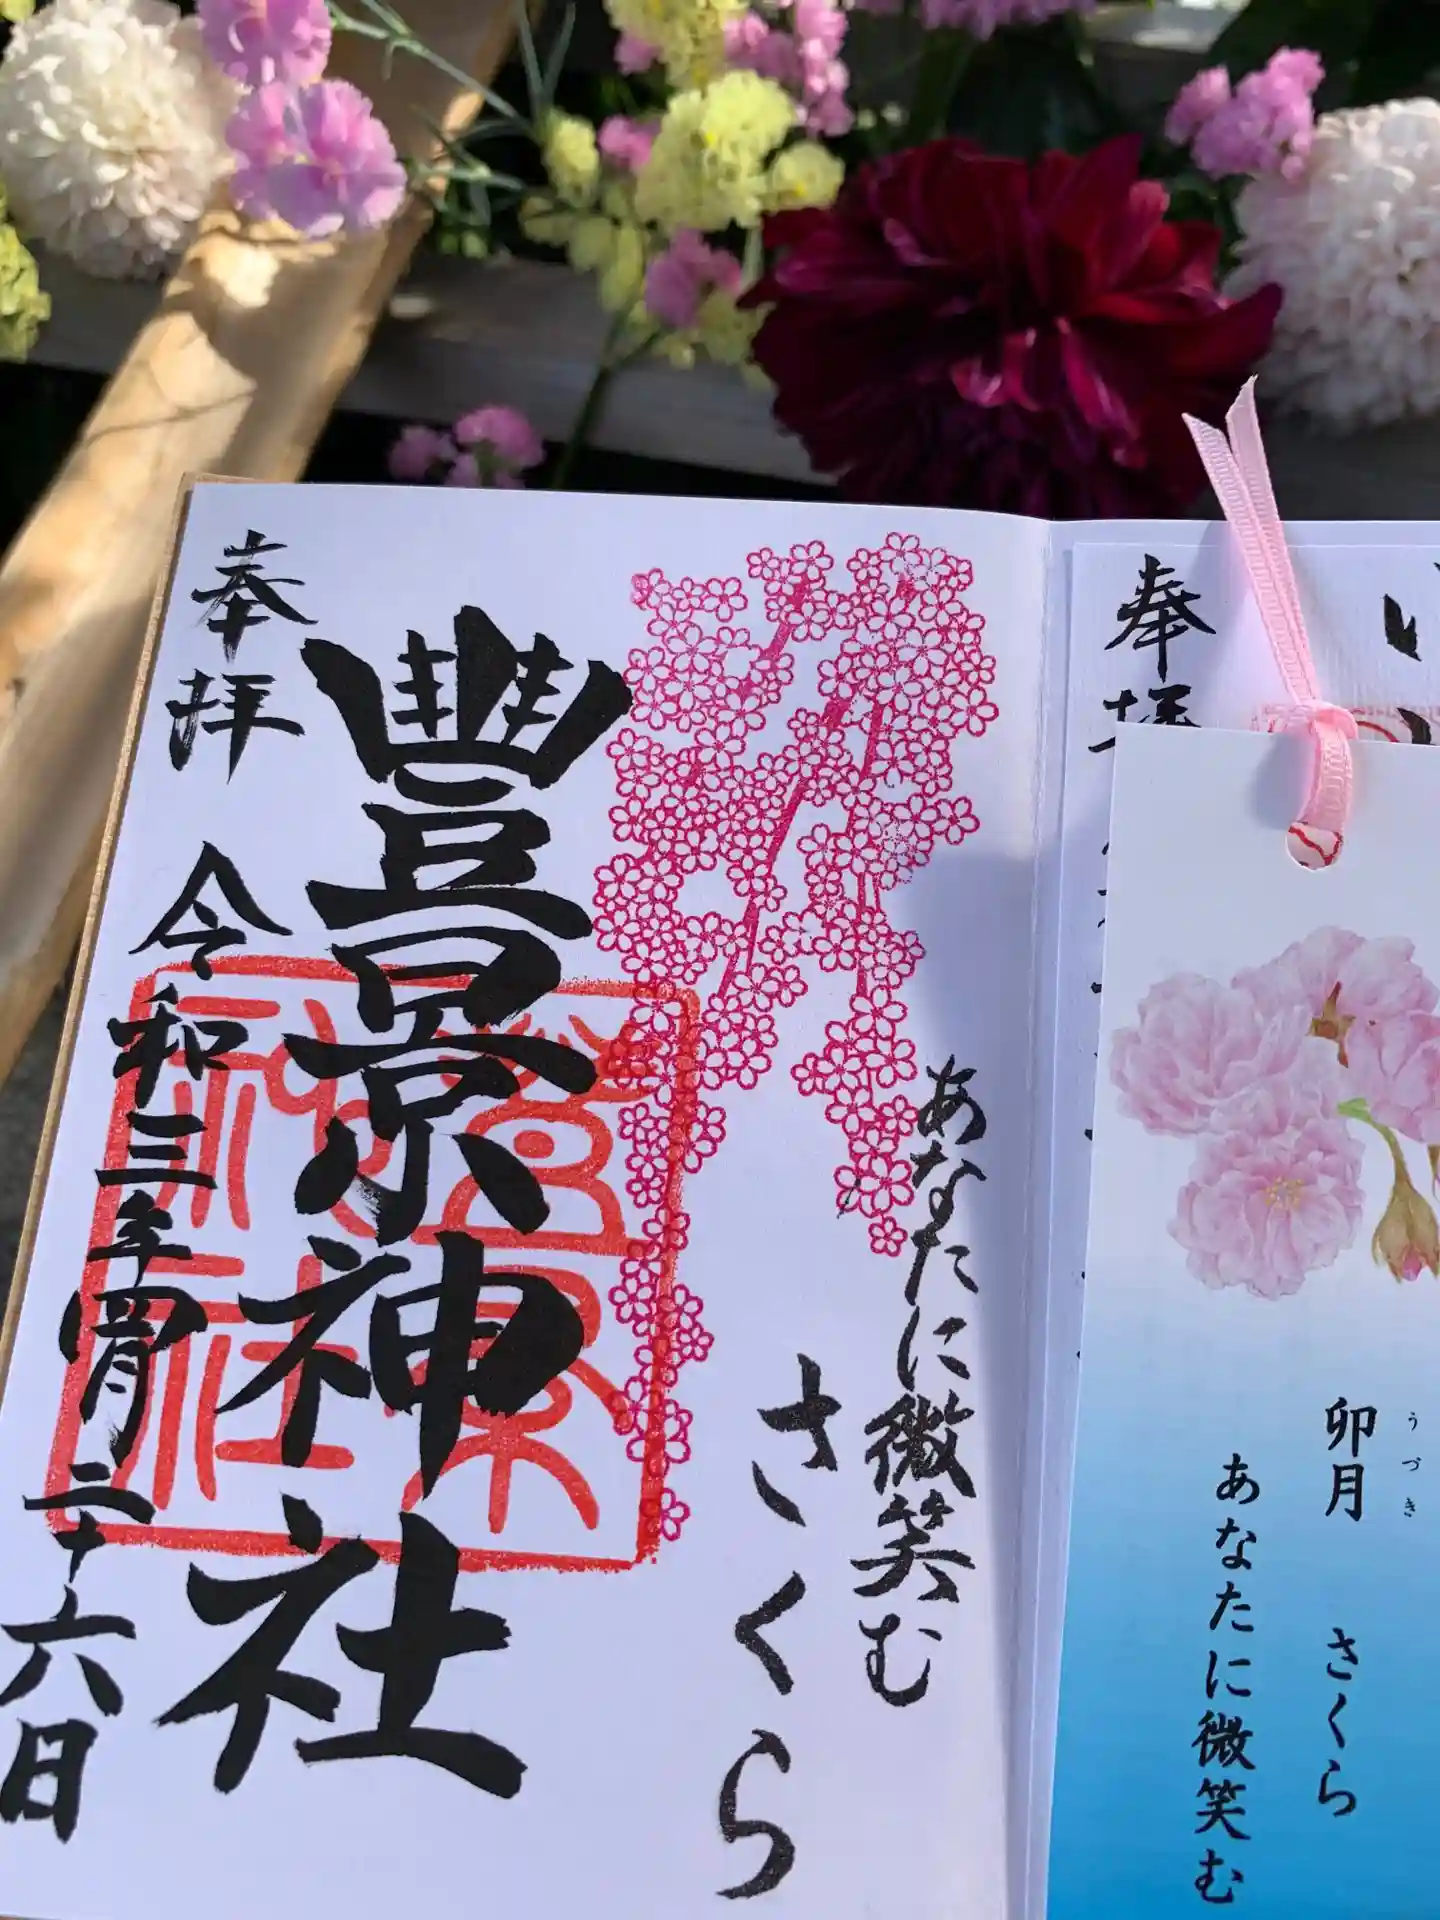 い
奉拝
卯月 さくら
うづき
あなたに微笑む
あなたに微笑む
さくら
豊景神社
奉拝 令和三年四月二十六日